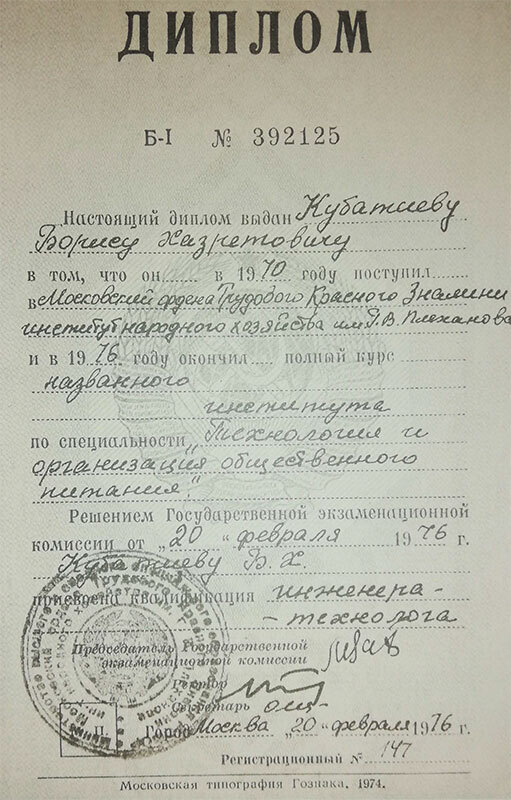 ДИПЛОМ
Б-I № 392125
Настоящий диплом выдан Кубатиеву
Борису Хазретовичу
в том, что он в 1970 году поступил
в Московский ордена Трудового Красного Знамени
институт народного хозяйства им. Г. В. Плеханова
и в 1976 году окончил полный курс
названного
института
по специальности „Технология и
организация общественного
питания."
Решением Государственной экзаменационной
комиссии от „20" февраля 1976 г.
Кубатиеву Б. Х.
присвоена квалификация инженера-
-технолога
Председатель Государственной
экзаменационной комиссии
Ректор
Секретарь
М. П. Город Москва „20" февраля 1976 г.
Регистрационный № 147
Московская типография Гознака, 1974.